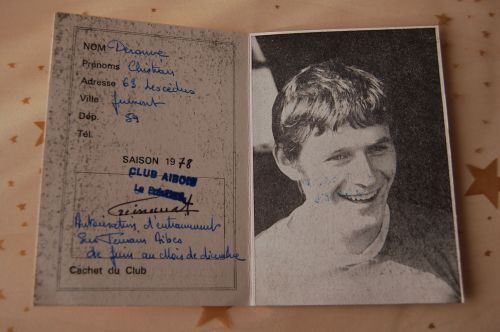 NOM Derouve
Prénoms Christian
Adresse 63 les cèdres
Ville Jeumont
Dép. 59
Tél.
SAISON 1978
CLUB AIBOIS
Le
Autorisation d'entrainement
Sur Terrain Aibes
de Juin au Mois de décembre
Cachet du Club